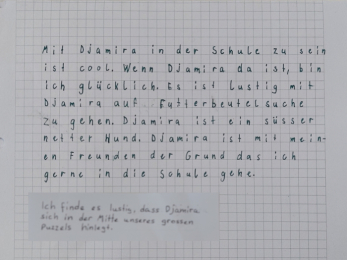 Mit Djamira in der Schule zu sein
ist cool. Wenn Djamira da ist, bin
ich glücklich. Es ist lustig mit
Djamira auf Futterbeutelsuche
zu gehen. Djamira ist ein süsser
netter Hund. Djamira ist mit mein-
en Freunden der Grund das ich
gerne in die Schule gehe.
Ich finde es lustig, dass Djamira
sich in der Mitte unseres grossen
Puzzels hinlegt.